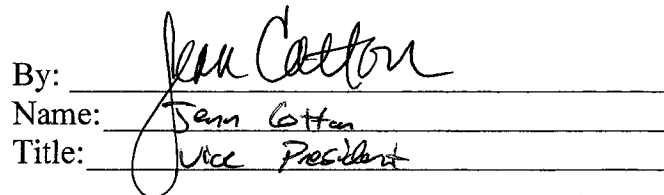 By: Jenn Cotton
Name: Jenn Cotton
Title: Vice President